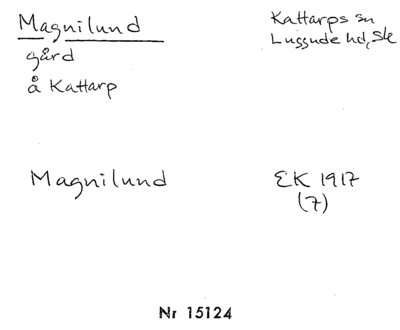 Magnilund
Kattarps sn
Luggude hd, Sk
gård
å Kattarp
Magnilund
EK 1917
(7)
Nr 15124